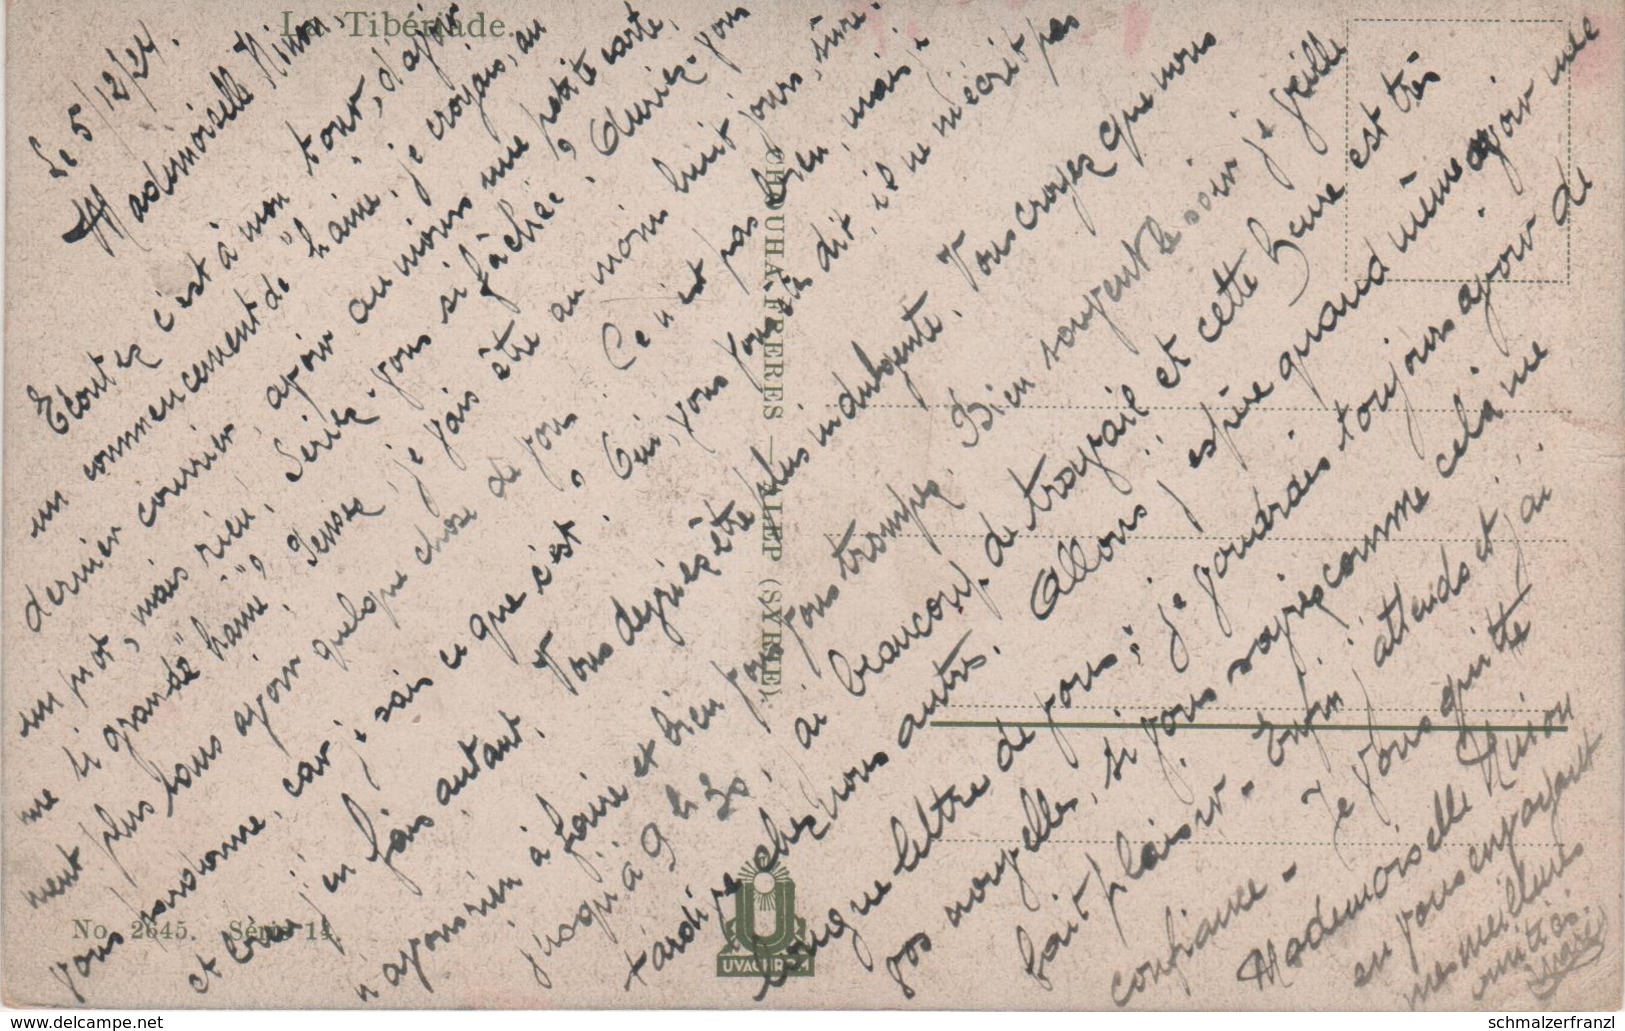 La Tibériade.
Le 5/12/24.
Mademoiselle Ninon,
Ecoutez c'est à mon tour, d'avoir
un commencement de "haine", je croyais, au
dernier courrier, avoir au moins une petite carte,
un mot, mais rien, Seriez-vous si fâchée? Auriez-vous
une si grande "haine"? Pensez, je vais être au moins huit jours, sûre-
ment plus sans avoir quelque chose de vous. Ce n'est pas bien, mais je
vous pardonne, car je sais ce que c'est. Oui, vous vous êtes dit, il ne m'écrit pas
et bien j'en fais autant. Vous devriez être plus indulgente. Vous croyez que nous
n'avons rien à faire et bien vous vous trompez. Bien souvent le soir je veille
jusqu'à 9 h 30, ai beaucoup de travail et cette heure est très
tardive chez nous autres. Allons, j'espère quand même avoir une
longue lettre de vous; je voudrais toujours avoir de
vos nouvelles, si vous saviez comme cela me
fait plaisir. Enfin j'attends et j'ai
confiance. Je vous quitte
Mademoiselle Ninon
en vous envoyant
mes meilleures
amitiés.
CHOUHA FRERES — ALEP (SYRIE).
No. 2645. Série 14.
UVACHROM
schmalzerfranzl
www.delcampe.net